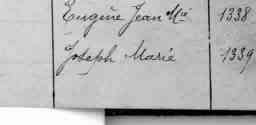 Eugène Jean Mie 1338
Joseph Marie 1339